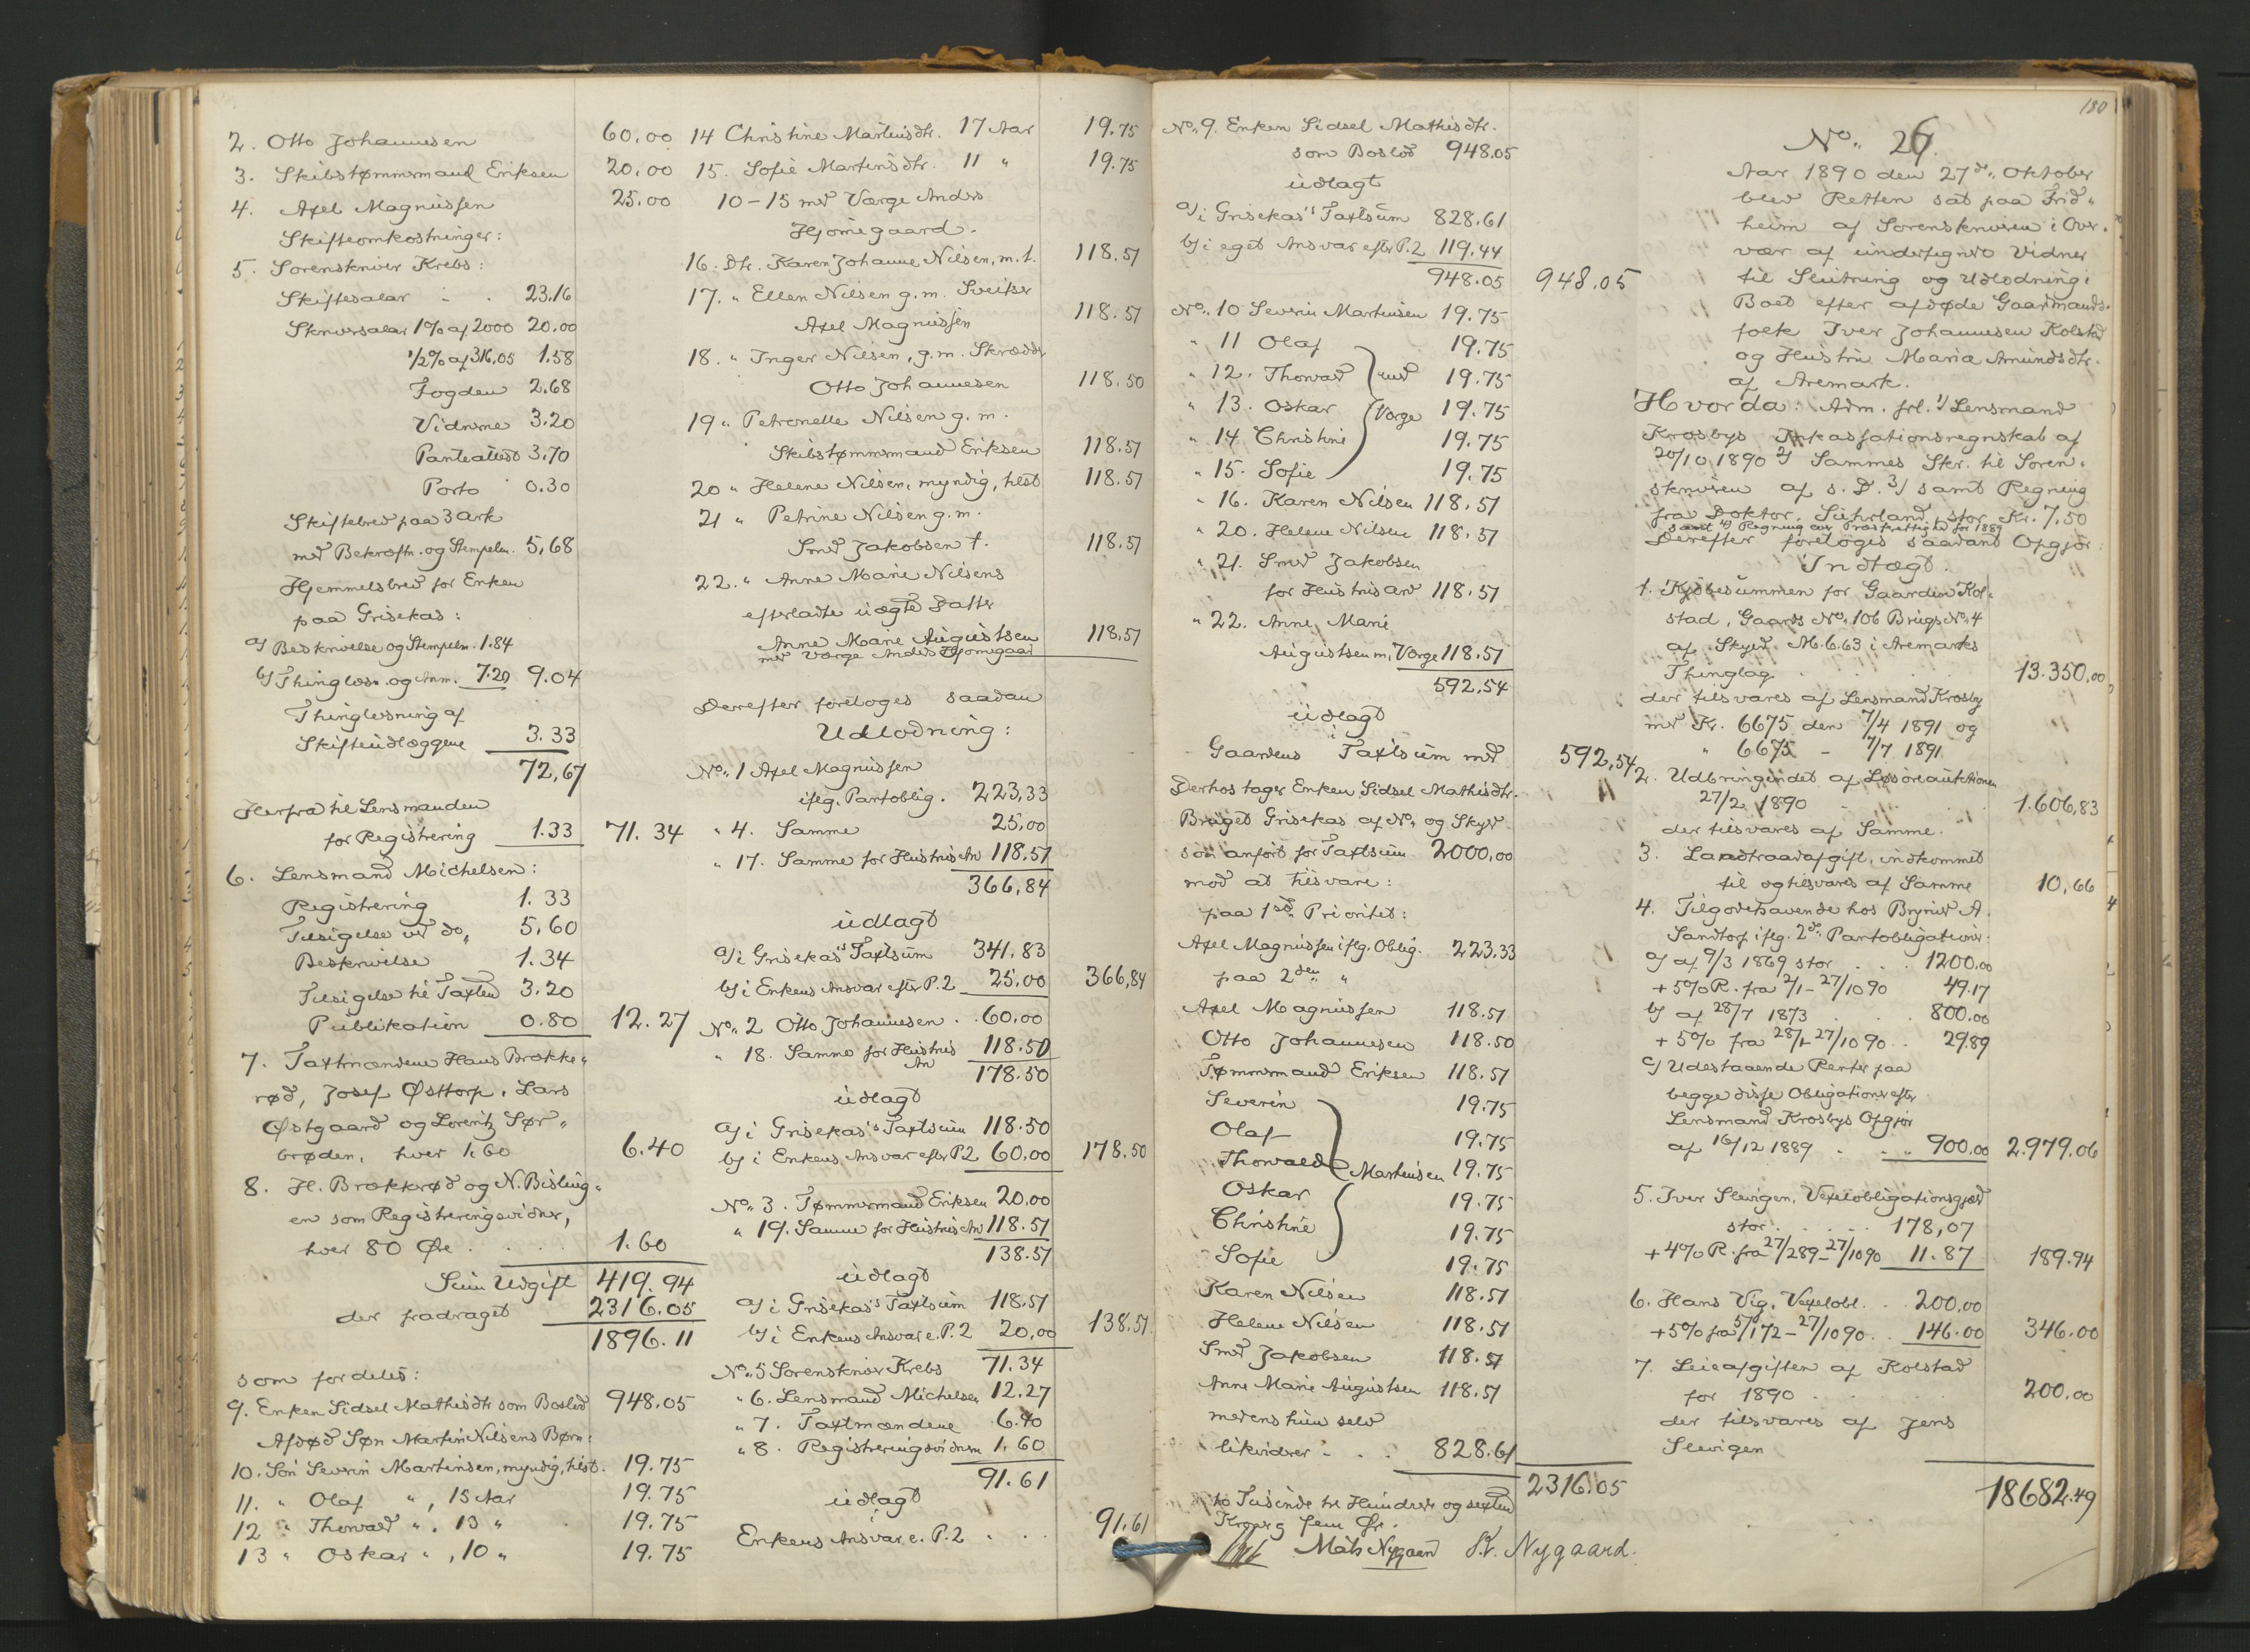 2. Otto Johannesen 60.00
3. Skibstømmermand Eriksen 20.00
4. Axel Magnussen 25.00
Skifteomkostninger:
5. Sorenskriver Krebs:
Skiftesalær - . 23.16
Skriversalær 1% af 2000 20.00
1/2% af 316,05 1.58
Fogden 2.68
Vidnerne 3.20
Panteattest 3.70
Porto 0.30
Skiftebrev paa 3 Ark
med Bekræftn. og Stempelm. 5,68
Hjemmelsbrev for Enken
paa Grisekas:
a) Beskrivelse og Stempelm. 1.84
b) Thinglæsn. og Anm. 7.20 9.04
Thinglæsning af
Skifteudlæggene 3.33
72,67
Herfra til Lensmanden
for Registrering 1.33 71.34
6. Lensmand Michelsen:
Registrering 1.33
Tilsigelse ved do„ 5,60
Beskrivelse 1.34
Tilsigelse til Taxten 3.20
Publikation 0.80 12.27
7. Taxtmændene Hans Brække„
rød, Josef Østtorp, Lars
Østgaard og Lorentz Sør„
brøden, hver 1.60 6.40
8. H. Brækkerød og N. Bisling„
en som Registreringsvidner,
hver 80 Øre . . . . 1.60
Sum Udgift 419.94
der fradraget 2316.05
1896.11
som fordeles:
9. Enken Sidsel Mathisdtr som Boslod 948.05
Afdød Søn Martin Nilsens Børn:
10. Søn Severin Martinsen, myndig, tilst. 19.75
11. " Olaf ", 15 Aar 19.75
12 " Thorvald ", 13 " 19.75
13 " Oskar ", 10 " 19.75
14 Christine Martinsdtr. 17 Aar 19.75
15. Sofie Martinsdtr. 11 " 19.75
10-15 med Værge Anders
Hjørnegaard.
16. Dtr. Karen Johanne Nilsen, m. t. 118.51
17. " Ellen Nilsen g. m. Sveitser
Axel Magnussen 118.51
18. " Inger Nilsen, g. m. Skrædder
Otto Johannesen 118.50
19 " Petronelle Nilsen g. m.
Skibstømmermand Eriksen 118.51
20 " Helene Nilsen, myndig, tilst 118.51
21 " Petrine Nilsen g. m.
Smed Jakobsen t. 118.51
22. " Anne Marie Nilsens
efterladte uægte Datter
Anne Marie Augustsen 118.51
med Værge Anders Hjørnegaard
Derefter foretoges saadan
Udlodning:
No. 1 Axel Magnussen
iflg. Pantoblig. 223,33
" 4. Samme 25,00
" 17. Samme for Hustrus Arv 118.51
366,84
udlagt
a) i Grisekas's Taxtsum 341.83
b) i Enkens Ansvar efter P. 2 25.00 366,84
No. 2 Otto Johannesen . . 60.00
" 18. Samme for Hustrus 118.50
Arv
178.50
udlagt
a) i Grisekas's Taxtsum 118.50
b) i Enkens Ansvar efter P 2 60.00 178.50
No. 3. Tømmermand Eriksen 20.00
" 19. Samme for Hustrus Arv 118.51
138.51
udlagt
a) i Grisekas's Taxtsum 118.51
b) i Enkens Ansvar e. P. 2 20,00 138.51
No. 5 Sorenskriver Krebs 71.34
" 6. Lensmand Michelsen 12.27
" 7. Taxtmændene 6.40
" 8. Registreringsvidnerne 1.60
91.61
udlagt
i
Enkens Ansvar e. P. 2 . . . 91.61
No. 9. Enken Sidsel Mathisdtr.
som Boslod 948.05
udlagt
a) i Grisekas's Taxtsum 828.61
b) i eget Ansvar efter P. 2 119.44
948.05 948.05
No. 10 Severin Martinsen 19.75
" 11 Olaf 19.75
" 12. Thorvald med 19.75
" 13. Oskar Værge 19.75
" 14 Christine 19.75
" 15. Sofie 19.75
" 16. Karen Nilsen 118.51
" 20. Helene Nilsen 118.51
" 21. Smed Jakobsen
for Hustrus Arv 118.51
" 22. Anne Marie
Augustsen m. Værge 118.51
592,54
udlagt
i
Gaardens Taxtsum med 592,54
Derhos tager Enken Sidsel Mathisdtr.
Bruget Grisekas af No. og Skyld
som anført for Taxtsum 2000,00
mod at tilsvare:
paa 1ste Prioritet:
Axel Magnussen iflg. Oblig. 223.33
paa 2den "
Axel Magnussen 118.51
Otto Johannesen 118.50
Tømmermand Eriksen 118.51
Severin 19.75
Olaf 19.75
Thorvald Martinsen 19.75
Oskar 19.75
Christine 19.75
Sofie 19.75
Karen Nilsen 118.51
Helene Nilsen 118.51
Smed Jakobsen 118.51
Anne Marie Augustsen 118.51
medens hun selv
likviderer - . . 828.61
2316.05
to Tusinde tre Hundrede og sexten
Kroner fem Øre.
Mats Nygaard Kr. Nygaard.
180
No. 26.
Aar 1890 den 27de Oktober
blev Retten sat paa Frid„
heim af Sorenskriveren i Over„
vær af undertegnede Vidner
til Slutning og Udlodning i
Boet efter afdøde Gaardmands„
folk Iver Johannesen Kolstad
og Hustru Maria Amundsdtr.
af Aremark.
Hvorda: Adm. frl. 1) Lensmand
Krosbys Inkassationsregnskab af
20/10 1890 2) Sammes Skr. til Soren„
skriveren af s. D. 3) samt Regning
fra Doktor Suhrland, stor Kr. 7,50
samt 4) Regning over Præsterettighed for 1889
Derefter foretoges saadant Opgjør:
Indtægt.
1. Kjøbesummen for Gaarden Kol„
stad, Gaards No. 106 Brugs No. 4
af Skyld M. 6.63 i Aremarks
Thinglag . . . . 13.350,00
der tilsvares af Lensmand Krosby
med Kr. 6675 den 7/4 1891 og
" 6675 - 7/7 1891.
2. Udbringendet af Løsøreauktionen
27/2 1890 . . . 1.606,83
der tilsvares af Samme.
3. Landtraadafgift, indkommet
til og tilsvares af Samme 10,66
4. Tilgodehavende hos Brynild A.
Sandtorp iflg. 2de Pantobligationer:
a) af 9/3 1869 stor . . . 1200.00
+ 5% R. fra 2/1 - 27/10 90 49.17
b) af 28/7 1873 . . . 800.00
+ 5% fra 28/1 27/10 90 . . 29.89
c) Udestaaende Renter paa
begge disse Obligationer efter
Lensmand Krosbys Opgjør
af 16/12 1889 . . . 900.00 2.979,06
5. Iver Slevigen, Vexelobligationsgjæld
stor . . . . . 178,07
+ 4% R. fra 27/2 89 - 27/10 90 11.87 189.94
6. Hans Vig, Vexelobl. . . 200.00
+ 5% fra 5/1 72 - 27/10 90 . . 146.00 346.00
7. Leieafgiften af Kolstad
for 1890 . . . . . 200.00
der tilsvares af Jens
Slevigen
18682.49